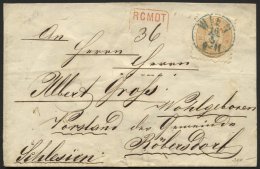 RCMDT
WIEN
An 36
Herrn
Herrn
Albert Groß
Wohlgeboren
Vorstand der Gemeinde
Röbersdorf
Schlesien